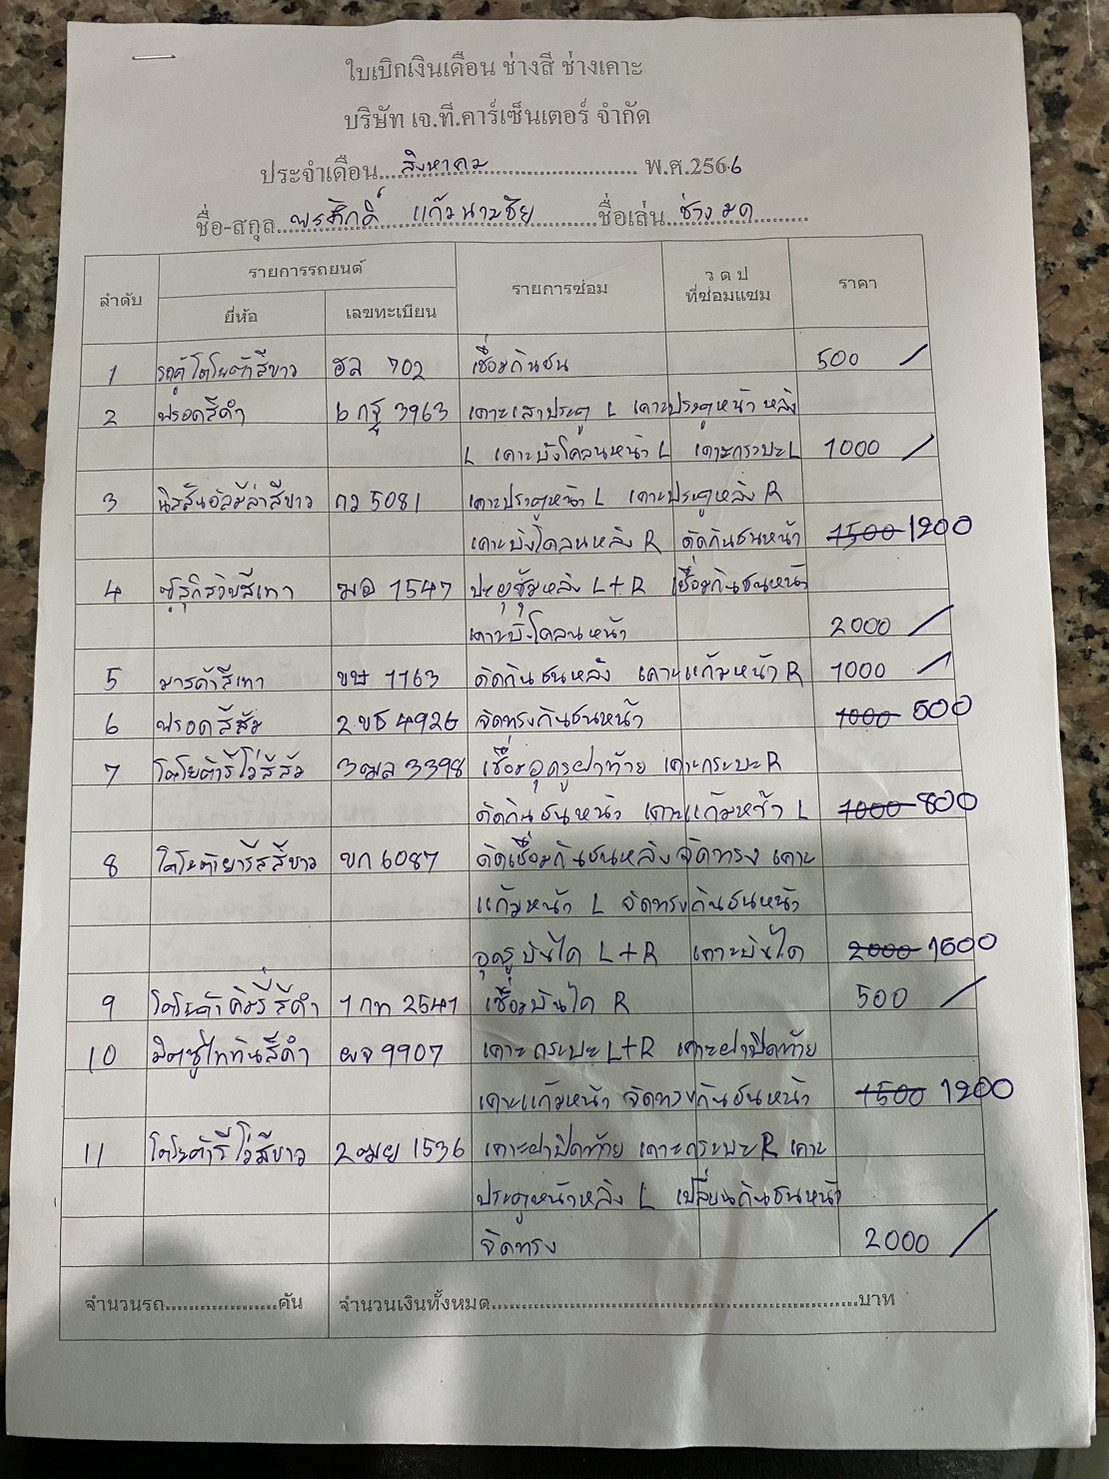 ใบเบิกเงินเดือน ช่างสี ช่างเคาะ
บริษัท เจ.ที.คาร์เซ็นเตอร์ จำกัด
ประจำเดือน....สิงหาคม.... พ.ศ.2566
ชื่อ-สกุล....พรศักดิ์ แก้วนามชัย....ชื่อเล่น....ช่างมด....
ลำดับ รายการรถยนต์ รายการซ่อม ว ด ป ที่ซ่อมแซม ราคา
ยี่ห้อ เลขทะเบียน
1 รถตู้โตโยต้าสีขาว ฮล 702 เชื่อมกันชน 500 /
2 ฟรอดสีดำ 6 กฐ 3963 เคาะเสาประตู L เคาะประตูหน้า หลัง
L เคาะบังโคลนหน้า L เคาะกระบะ L 1000 /
3 นิสสันอัลมีล่าสีขาว กว 5081 เคาะประตูหน้า L เคาะประตูหลัง R
เคาะบังโคลนหลัง R ดัดกันชนหน้า 1500 1200
4 ซูสุกิสวิบสีเทา มอ 1547 ปะผุซุ้มหลัง L+R เชื่อมกันชนหน้า
เคาะบังโคลนหน้า 2000 /
5 มารด้าสีเทา ขษ 1163 ดัดกันชนหลัง เคาะแก้มหน้า R 1000 /
6 ฟรอดสีส้ม 2 ขธ 4926 จัดทรงกันชนหน้า 1000 500
7 โตโยต้ารีโว่สีส้ม 3ฒล 3398 เชื่อมอุดรูฝาท้าย เคาะกระบะ R
ดัดกันชนหน้า เคาะแก้มหน้า L 1000 800
8 โตโยต้ายาริสสีขาว ขก 6087 ดัดเชื่อมกันชนหลังจัดทรง เคาะ
แก้มหน้า L จัดทรงกันชนหน้า
อุดรูบันได L+R เคาะบันได 2000 1600
9 โตโยต้าคัมรี่สีดำ 1 กท 2541 เชื่อมบันได R 500 /
10 มิตซูไททันสีดำ ผจ 9907 เคาะกระบะ L+R เคาะฝาปิดท้าย
เคาะแก้มหน้า จัดทรงกันชนหน้า 1500 1200
11 โตโยต้ารีโว่สีขาว 2ฒย 1536 เคาะฝาปิดท้าย เคาะกระบะ R เคาะ
ประตูหน้าหลัง L เปลี่ยนกันชนหน้า
จัดทรง 2000 /
จำนวนรถ....................คัน จำนวนเงินทั้งหมด....................บาท